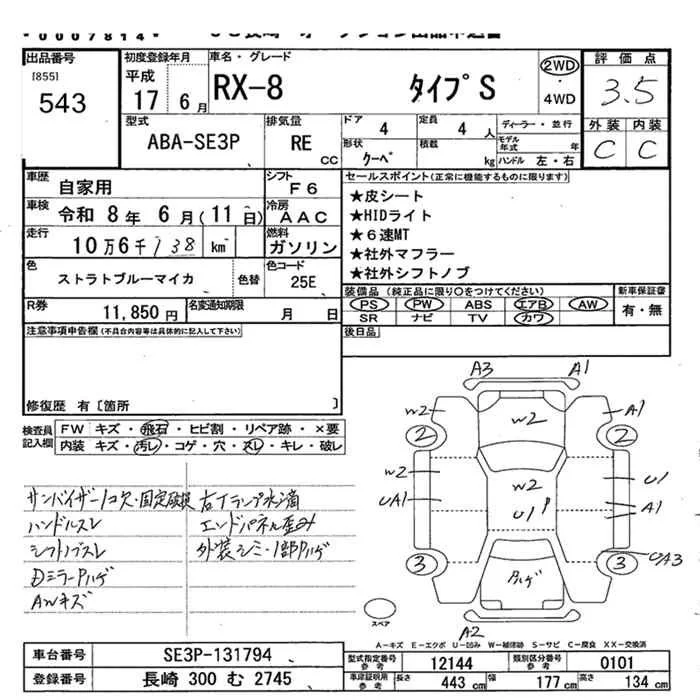 *0007814*
出品番号 初度登録年月 車名・グレード 2WD 評価点
[855] 平成 RX-8 タイプS ・ 3.5
543 17 年 6 月 4WD
型式 排気量 ドア 定員 ディーラー・並行 外装 内装
ABA-SE3P RE CC 4 4 人 モデル年式 年 C C
形状 クーペ 積載 kg ハンドル 左・右
車歴 自家用 シフト F6 セールスポイント(正常に機能するものに限ります)
車検 令和 8 年 6 月 (11 日) 冷房 AAC ★皮シート
★HIDライト
走行 10万6千138 km 燃料 ガソリン ★6速MT
★社外マフラー
色 ストラトブルーマイカ 色替 色コード 25E ★社外シフトノブ
装備品(純正品に限り○をつけてください) 新車保証書
R券 11,850円 名変通知期限 月 日 PS PW ABS エアB AW 有・無
SR ナビ TV カワ
注意事項申告欄(不具合内容等は具体的に記入して下さい) 後日品
修復歴 有〔箇所 〕
検査員記入欄 FW キズ・飛石・ヒビ割・リペア跡・×要
内装 キズ・汚レ・コゲ・穴・スレ・キレ・破レ
サンバイザー1コ欠・固定破損 右Tランプ水滴
ハンドルスレ エンドパネル歪み
シフトノブスレ 外装シミ・1部Pハゲ
DミラーPハゲ
AWキズ
A3 A1
W2 W2 A1
2 2
W2 W2 U1
UA1 U1 P A1
3 Pハゲ 3 UA3
A2
スペア
A−キズ E−エクボ U−凹み W−補修跡 S−サビ C−腐食 XX−交換済
車台番号 SE3P-131794 型式指定番号 参考 12144 類別区分番号 参考 0101
登録番号 長崎 300 む 2745 車庫証明用 参考 長さ 443 cm 幅 177 cm 高さ 134 cm